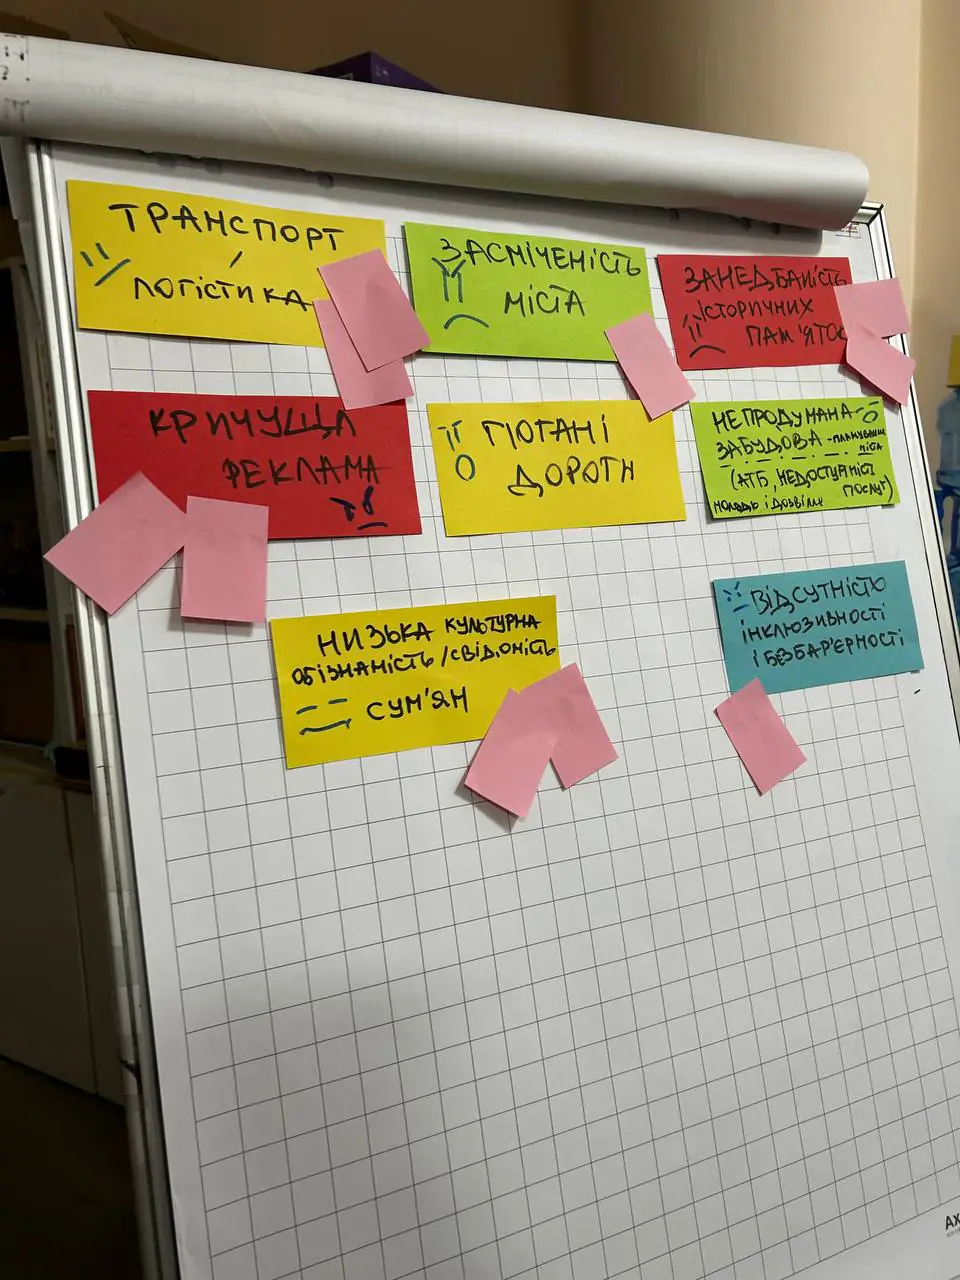 ТРАНСПОРТ
/
ЛОГІСТИКА
ЗАСМІЧЕНІСТЬ
МІСТА
ЗАНЕДБАНІСТЬ
ІСТОРИЧНИХ
ПАМ'ЯТОК
КРИЧУЩА
РЕКЛАМА
ПОГАНІ
ДОРОГИ
НЕПРОДУМАНА
ЗАБУДОВА - ПЛАНУВАННЯ
МІСТА
(АТБ, НЕДОСТУПНІСТЬ
ПОСЛУГ)
МОЛОДЬ І ДОЗВІЛЛЯ
НИЗЬКА КУЛЬТУРНА
ОБІЗНАНІСТЬ / СВІДОМІСТЬ
СУМ'ЯН
ВІДСУТНІСТЬ
ІНКЛЮЗИВНОСТІ
І БЕЗБАР'ЄРНОСТІ